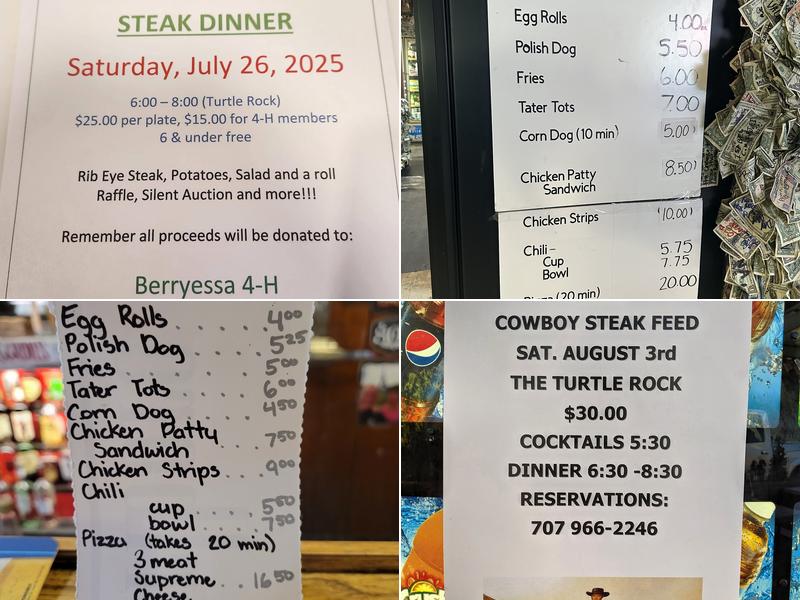 STEAK DINNER
Saturday, July 26, 2025
6:00 – 8:00 (Turtle Rock)
$25.00 per plate, $15.00 for 4-H members
6 & under free
Rib Eye Steak, Potatoes, Salad and a roll
Raffle, Silent Auction and more!!!
Remember all proceeds will be donated to:
Berryessa 4-H
Egg Rolls 4.00
Polish Dog 5.50
Fries 6.00
Tater Tots 7.00
Corn Dog (10 min) 5.00
Chicken Patty 8.50
Sandwich
Chicken Strips 10.00
Chili- 5.75
Cup 7.75
Bowl
Pizza (20 min) 20.00
Egg Rolls . . . . . 4.00
Polish Dog . . . . 5.25
Fries . . . . . . 5.00
Tater Tots . . . . 6.00
Corn Dog . . . . 4.50
Chicken Patty
Sandwich . . . 7.50
Chicken Strips . . . 9.00
Chili
cup . . . . 5.50
bowl . . . . 7.50
Pizza (takes 20 min)
3 meat
Supreme . . . 16.50
Cheese
COWBOY STEAK FEED
SAT. AUGUST 3rd
THE TURTLE ROCK
$30.00
COCKTAILS 5:30
DINNER 6:30 -8:30
RESERVATIONS:
707 966-2246